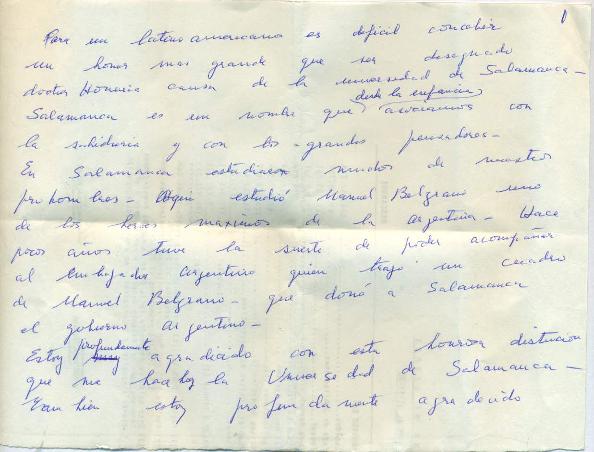 1
Para un latino americano es dificil concebir
un honor mas grande que ser designado
doctor Honoris causa de la universidad de Salamanca -
desde la infancia
Salamanca es un nombre que asociamos con
la sabiduria y con los grandes pensadores -
En Salamanca estudiaron muchos de nuestros
pro hombres - Aqui estudió Manuel Belgrano uno
de los heroes maximos de la Argentina - Hace
pocos años tuve la suerte de poder acompañar
al Embajador Argentino quien trajo un cuadro
de Manuel Belgrano - que donó a Salamanca
el gobierno Argentino -
profundamente
Estoy muy agradecido con esta honrosa distincion
que me hace hoy la Universidad de Salamanca -
Tambien estoy profundamente agradecido